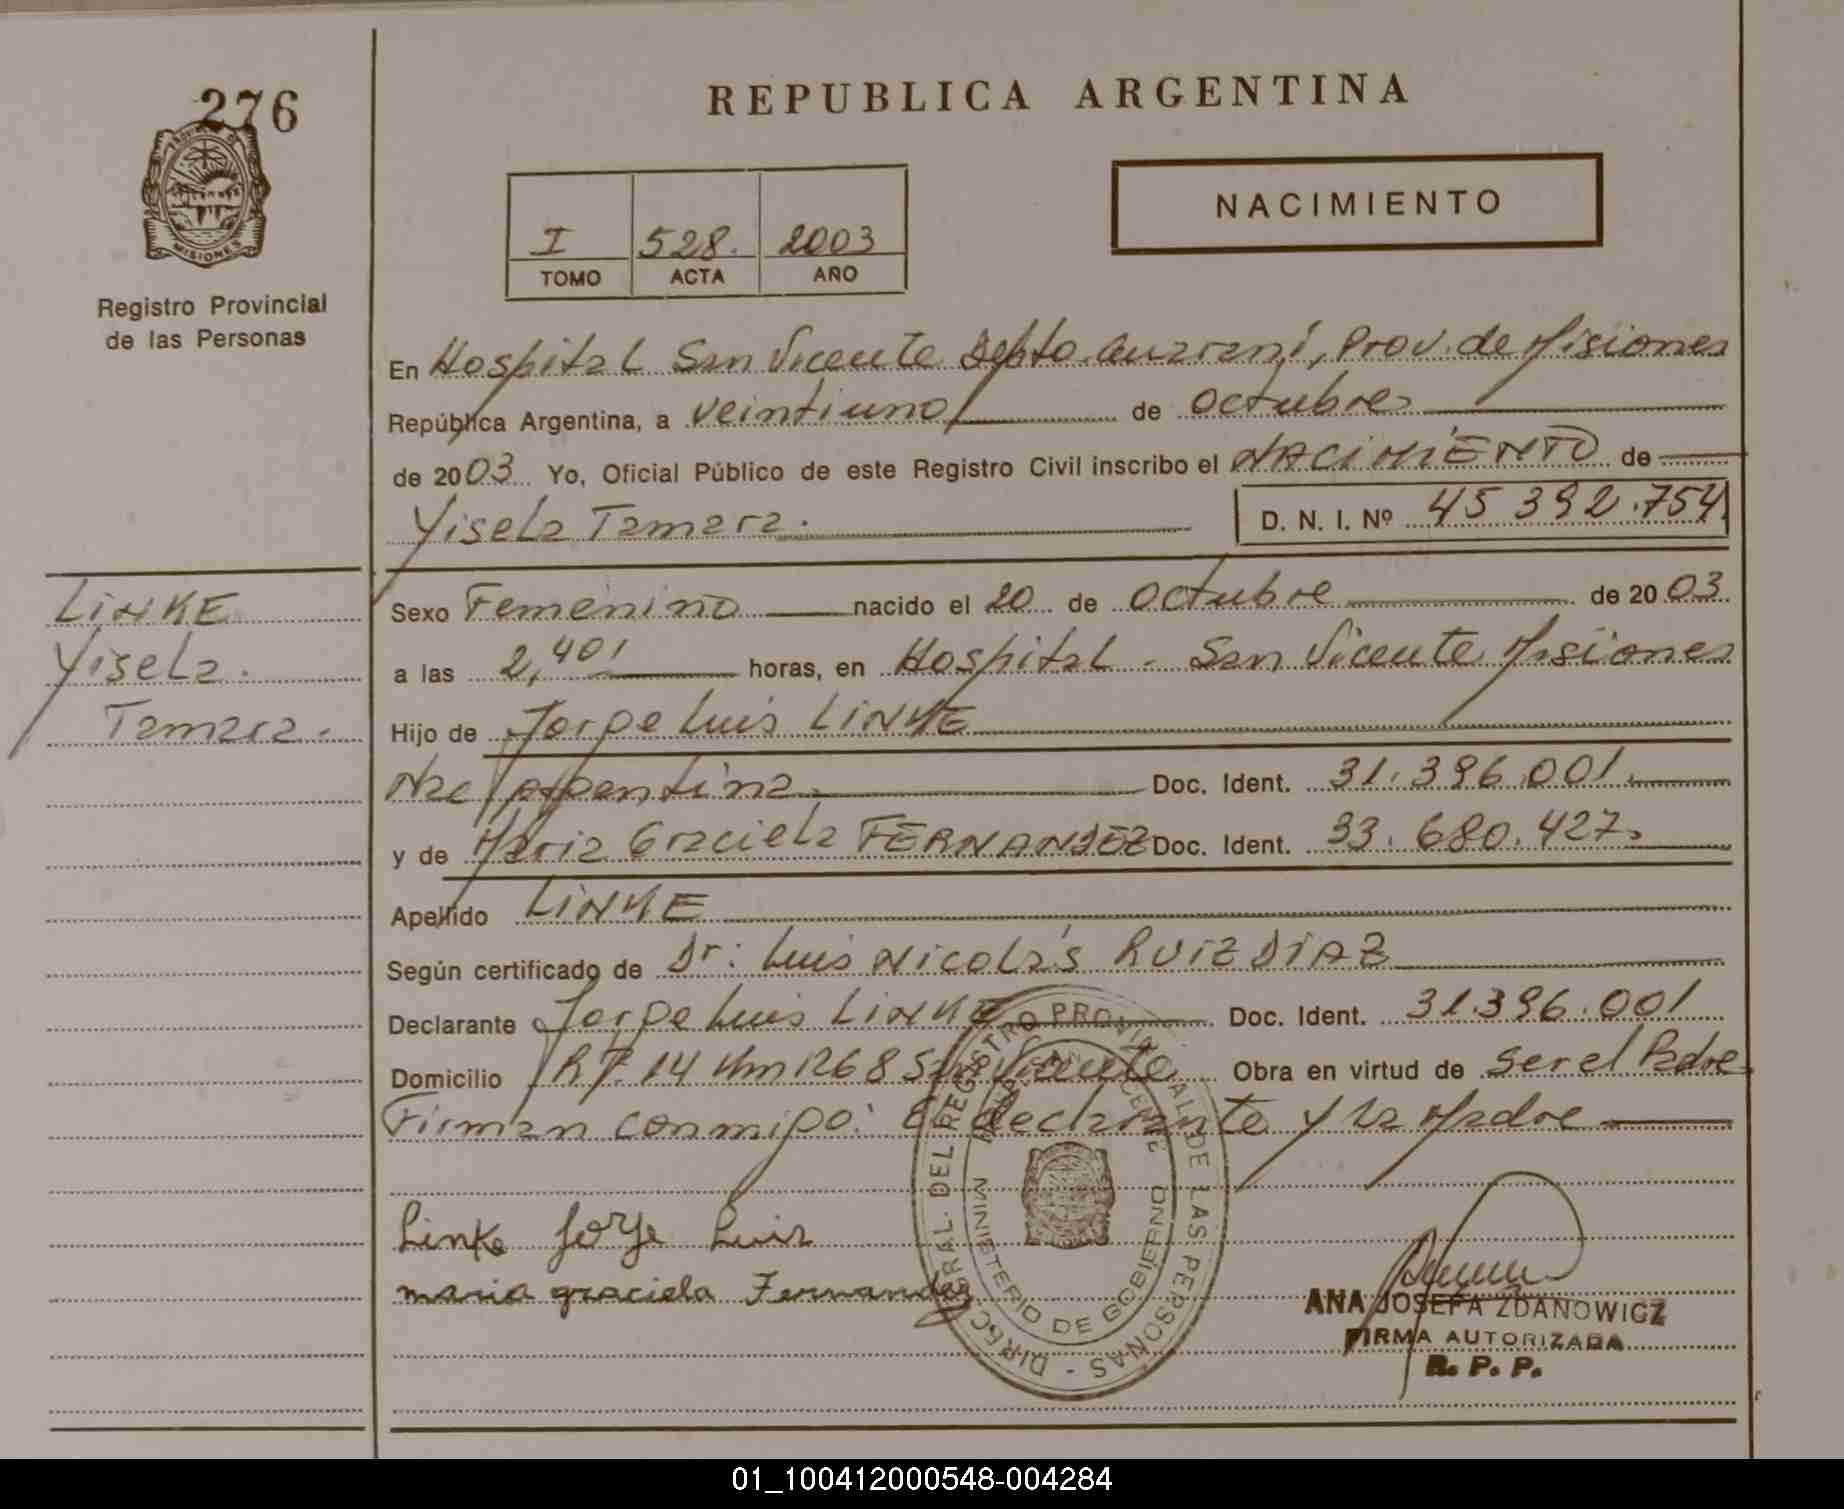 276
REPUBLICA ARGENTINA
NACIMIENTO
I 528. 2003
TOMO ACTA AÑO
MISIONES
Registro Provincial
de las Personas
En Hospital San Vicente Depto. Guaraní, Prov. de Misiones
República Argentina, a veintiuno de octubre
de 2003 Yo, Oficial Público de este Registro Civil inscribo el NACIMIENTO de
Yisela Tamara.
D. N. I. Nº 45 392.754
LINKE
Yisela.
Tamara.
Sexo Femenino nacido el 20 de octubre de 2003
a las 2,40' horas, en Hospital - San Vicente Misiones
Hijo de Jorge Luis LINKE
Nac argentina Doc. Ident. 31.396.001.
y de Maria Graciela FERNANDEZ Doc. Ident. 33.680.427
Apellido LINKE
Según certificado de Dr: Luis Nicolás RUIZ DIAZ
Declarante Jorge Luis LINKE Doc. Ident. 31.396.001
Domicilio 14 Km 1268 San Vicente Obra en virtud de ser el Padre
Firman conmigo: El declarante y la Madre
Linke Jorge Luis
maria graciela Fernandez
DIREC. GRAL. DEL REGISTRO PROVINCIAL DE LAS PERSONAS -
MINISTERIO DE GOBIERNO
ANA JOSEFA ZDANOWICZ
FIRMA AUTORIZADA
R. P. P.
01_100412000548-004284